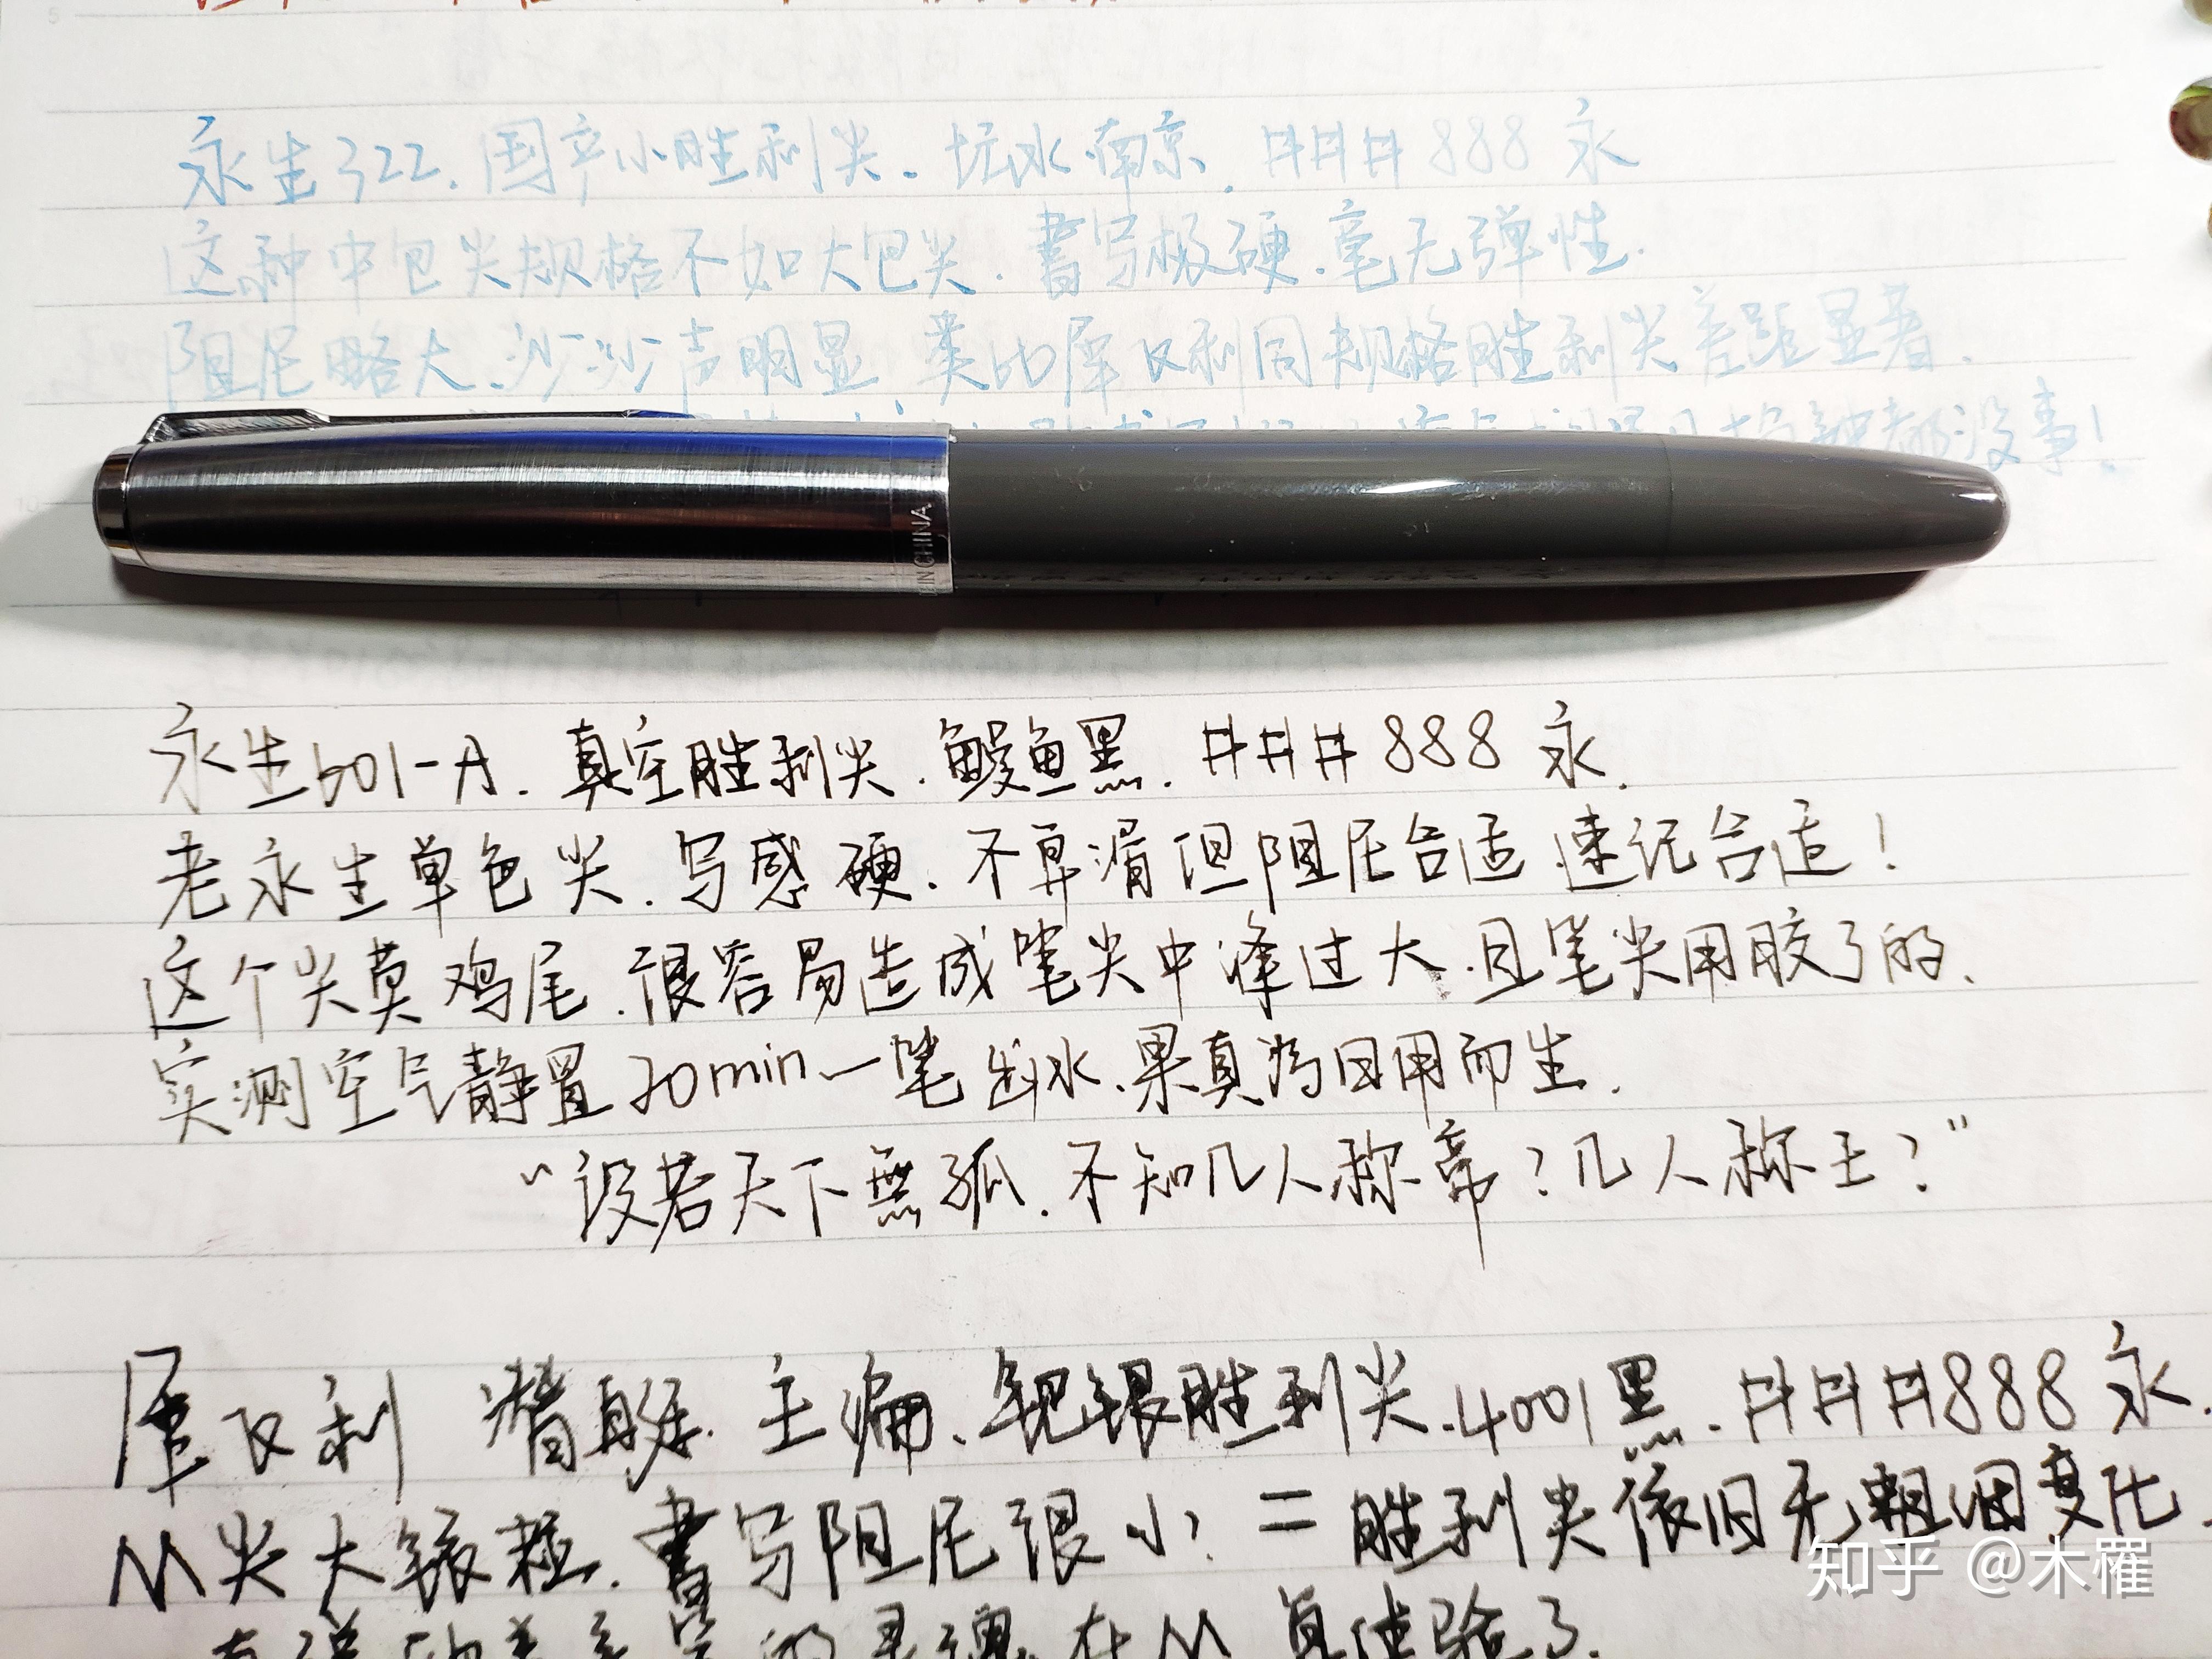 永生322.国产小胜利尖.坛水·南京.井井井888永
这种中包尖规格不如大包尖.書写极硬.毫无弹性.
阻尼略大.沙沙声明显 类比犀飞利同规格胜利尖差距显著.
都没事!
IN CHINA
永生601-A.真空胜利尖.鳗鱼黑.井井井888永.
老永生单色尖.写感硬.不算滑但阻尼合适.速记合适!
这个尖莫鸡尾.很容易造成笔尖中缝过大.且笔尖用胶了的.
实测空气静置20min一笔出水.果真为日用而生.
“设若天下無孤.不知几人称帝?几人称王?”
犀飞利 主编.钯银胜利尖.4001黑.井井井888永.
M尖大铱粒.書写阻尼很小.=胜利尖依旧无粗细变化.
的灵魂.在M 真体验了.
知乎 @木罹